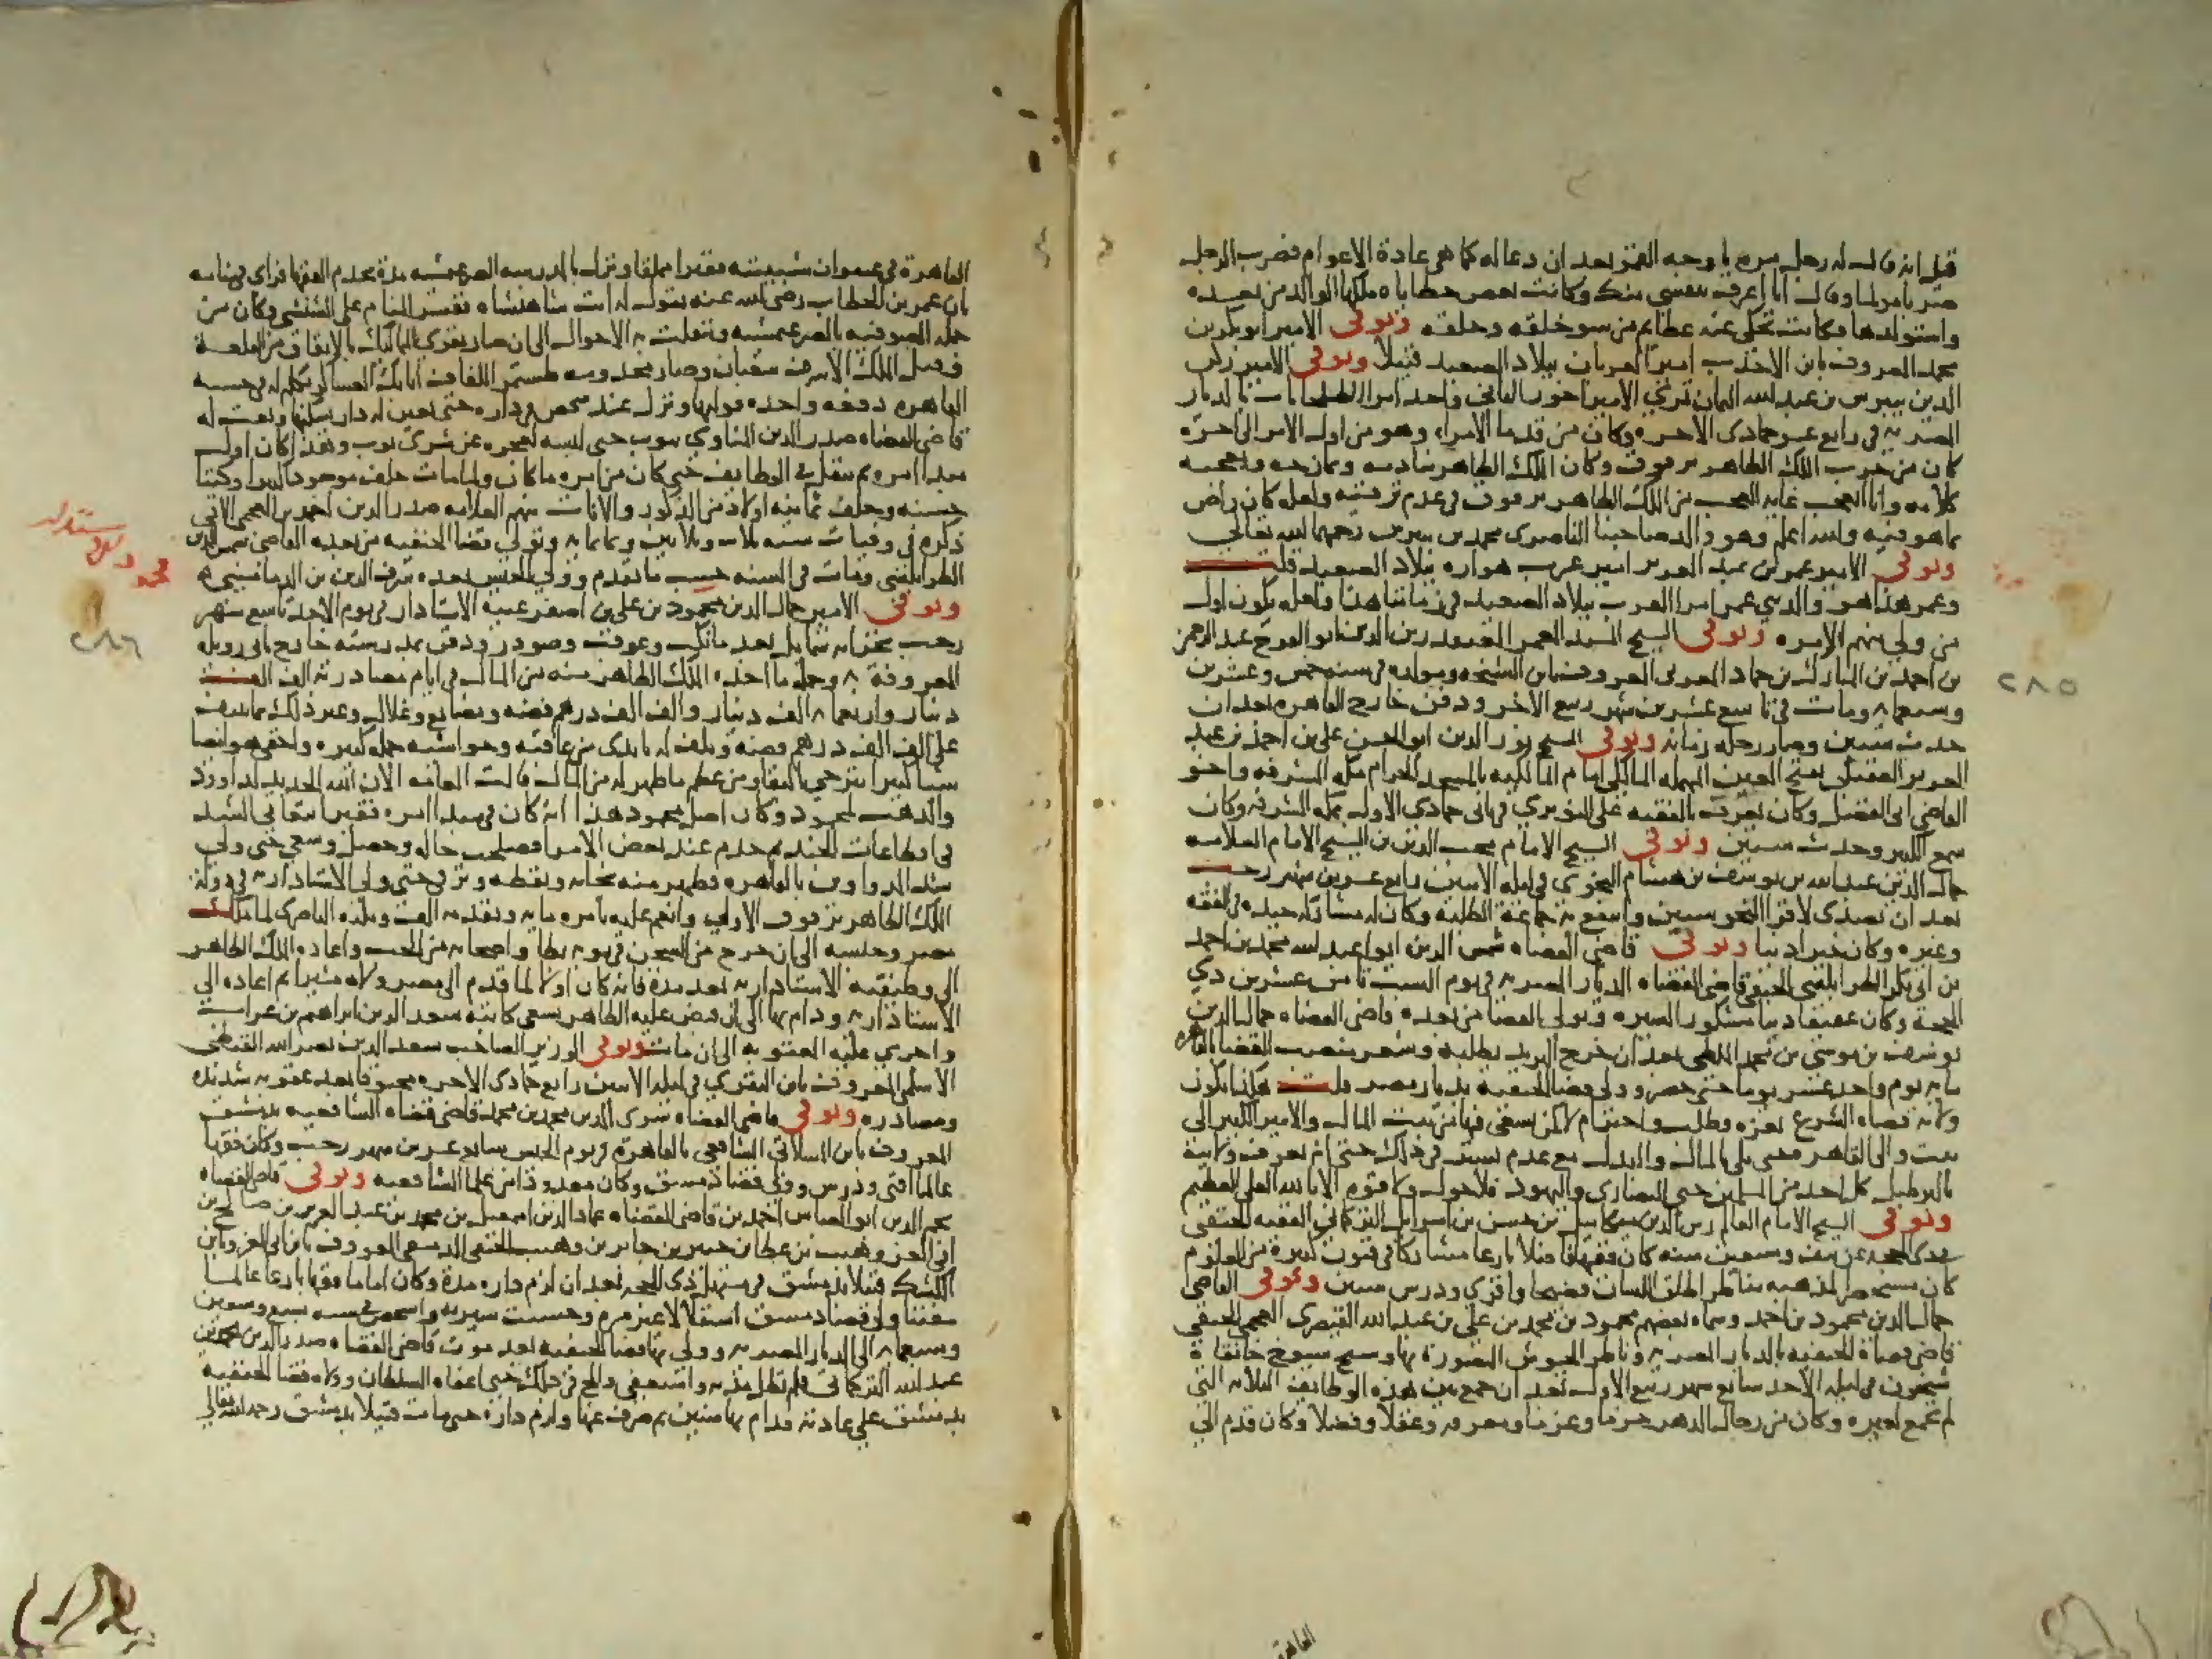 قيل انه قال له رجل مره يا وجه القمر بعد ان دعا له كما هي عادة الاعوام فضرب الرجل
وقال انا اعرف بنفسي منك وكانت بعض حظاياه ملكها الوالد من بعده
واستولدها فكانت تحكي عنه عظايم من سو خلقه وخلقه وتوفي الامير ابو بكر بن
محمد المعروف بابن الاحدب امير العربان ببلاد الصعيد قتيلا وتوفي الامير ركن
الدين بيبرس بن عبد الله التمان تمري الامير اخور الثاني واحد امرا الطبلخانات بالديار
المصريه في رابع عشر جمادى الاخره وكان من قدما الامراء وهو من اول الامر الى اخره
كان من حزب الملك الظاهر برقوق وكان الملك الظاهر ينادمه ويمازحه ويعجبه
كلامه وانا اتعجب غايه العجب من الملك الظاهر برقوق في عدم ترقيته ولعله كان راض
بما هو فيه والله اعلم وهو والد صاحبنا الناصرى محمد بن بيبرس رحمهما الله تعالى
وتوفي الامير عمر بن عبد العزيز امير عرب هواره ببلاد الصعيد قلت
وعمر هذا هو والد بني عمر امرا العرب ببلاد الصعيد في زماننا هذا ولعله يكون اول
من ولي منهم الامره وتوفي الشيخ المسند المعمر المقعد زين الدين ابو الفرج عبد الرحمن
بن احمد بن المبارك بن حماد الغزي المعروف بابن الشيخه ومولده في سنه خمس وعشرين
وسبعمايه ومات في تاسع عشرين شهر ربيع الاخر ودفن خارج القاهره بعد ان
حدث سنين وصار رحله زمانه وتوفي الشيخ نور الدين ابو الحسن علي بن احمد بن عبد
العزيز العقيلي بفتح العين المهمله المالكي امام المالكيه بالمسجد الحرام بمكه المشرفه واخو
القاضي ابي الفضل وكان يعرف بالفقيه علي النويري في ثاني جمادى الاولى بمكه المشرفه وكان
سمع الكثير وحدث سنين وتوفي الشيخ الامام محب الدين بن الشيخ الامام العلامه
جمال الدين عبد الله بن يوسف بن هشام النحوي في ليله الاثنين رابع عشرين شهر رجب
بعد ان تصدى لاقرا النحو سنين وانتفع به جماعة الطلبه وكان له مشاركه جيده في الفقه
وغيره وكان خيرا دينا وتوفي قاضي القضاه شمس الدين ابو عبد الله محمد بن احمد
بن ابي بكر الطرابلسي الحنفي قاضي القضاه الديار المصريه في يوم السبت ثامن عشرين ذي
الحجة وكان عفيفا دينا مشكور السيره وتولى القضا من بعده قاضي القضاه جمال الدين
يوسف بن موسى بن محمد الملطي بعد ان خرج البريد بطلبه وشغر منصب القضا بالقاهره
مايه يوم واحد عشر يوما حتى حضر وولي قضا الحنفيه بديار مصر قلت هكذا يكون
ولاية قضاه الشرع بعزه وطلب واحترام لا كمن يسعى فيها من بيت المال والامير الكبير الى
بيت والى القاهر حتى يلي بالمال والبذل مع عدم تستر في ذلك حتى انه يعرف ولايته
بالبرطيل كل احد من المسلمين حتى النصارى واليهود فلا حول ولا قوه الا بالله العلي العظيم
وتوفي الشيخ الامام العالم زين الدين ميكاييل بن حسن بن اسراييل التركماني الفقيه الحنفي
عن نيف وسبعين سنه كان فقيها فاضلا بارعا مشاركا في فنون كثيرة من العلوم
كان مستحضرا لمذهبه مناظر اطلق اللسان فصيحا واقرى ودرس سنين وتوفي القاضي
جمال الدين محمود بن احمد وسماه بعضهم محمود بن محمد بن علي بن عبد الله القيصرى العجمي الحنفي
قاضي قضاة الحنفيه بالديار المصريه وناظر الجيوش المنصورة بها وشيخ شيوخ خانقاة
شيخون في ليله الاحد سابع شهر ربيع الاول بعد ان جمع بين هذه الوظايف الثلاثه التي
لم تجمع لغيره وكان من رجال الدهر حزما وعزما ومعرفه وعقلا وفضلا وكان قدم الى
القاهرة
٢٨٥
القاهرة في عنفوان شبيبته فقيرا مملقا ونزل بالمدرسه الصرغتمشيه مدة يخدم الفقرا فراى في منامه
بان عمر بن الخطاب رضي الله عنه يقول له انت شاهنشاه ففسر المنام على الششني وكان من
جمله الصوفيه بالصرغتمشيه وتنقلت به الاحوال الى ان صار يقرى المماليك بالاطباق من القلعة
فقتل الملك الاشرف شعبان وصار مخدومه طشتمر اللفاف اتابك العساكر تكلم له في حسبه
القاهره دفعه واحده فوليها ونزل عند شخص في داره حتى تعين له دار يسكنها وبعث له
قاضي القضاه صدر الدين المناوي بثوب حتى لبسه لعجزه عن شرى ثوب وهذا كان اول
مبدا امره ثم تنقل في الوظايف حتى كان من امره ما كان ولما مات خلف موجودا كثيرا وكتبا
حسنه وخلف ثمانيه اولاد من الذكور والاناث منهم العلامه صدر الدين احمد بن العجمي الاتي
ذكره في وفيات سنه ثلاث وثلاثين وثمانمايه وتولى قضا الحنفيه من بعده القاضي شمس الدين
الطرابلسي ومات في السنه حسب ما تقدم وولي الجيش بعده شرف الدين بن الدماميني
وتوفي الامير جمال الدين محمود بن علي بن اصفر عينه الاستادار في يوم الاحد تاسع شهر
رجب بخزانه شمايل بعد ما نكب وعوقب وصودر ودفن بمدرسته خارج باب زويله
المعروفة به وجملة ما اخذه الملك الظاهر منه من المال في ايام مصادرته الف الف
دينار واربعمايه الف دينار والف الف درهم فضه وبضايع وغلال وغير ذلك ما ينيف
على الف الف درهم فضه وتلف له بايدي من عاقبه وحواشيه جمله كبيره واخفى هو ايضا
شيا كثيرا يترجى بالبقا ومن عظم ما ظهر له من المال قالت العامه الان الله الحديد لداوود
والذهب لمحمود وكان اصل محمود هذا انه كان في مبدا امره فقيرا يتعانى الشد
في اقطاعات الجند ثم خدم عند بعض الامرا فصلحت حاله وحصل وسعى حتى ولي
شد الدواوين بالقاهره وظهر منه نجابه ويقظه وترقى حتى ولي الاستاداريه في دولة
الملك الظاهر برقوق الاولى وانعم عليه بامره مايه وتقدمه الف ونكبه الناصرى لما ملك
مصر وحبسه الى ان خرج من السجن في نوبه بطا واصحابه من الجب واعاده الملك الظاهر
الى وظيفته الاستاداريه بعد مدة فانه كان اولا لما قدم الى مصر ولاه مشيرا ثم اعاده الى
الاستاداريه ودام بها الى ان قبض عليه الظاهر بسعي كاتبه سعد الدين ابراهيم بن غراب
واجري عليه العقوبه الى ان مات وتوفي الوزير الصاحب سعد الدين نصر الله القبطي
الاسلمي المعروف بابن البقري في ليله الاثنين رابع جمادى الاخره مخنوقا بعد عقوبه شديده
ومصادره وتوفي قاضي القضاه سرى الدين محمد بن محمد قاضي قضاه الشافعيه بدمشق
المعروف بابن المسلاتي الشافعي بالقاهرة في يوم الخميس سابع عشرين شهر رجب وكان فقيها
عالما افتى ودرس وولي قضا دمشق وكان معدودا من علما الشافعيه وتوفي قاضي القضاه
نجم الدين ابو العباس احمد بن قاضي القضاه عماد الدين اسمعيل بن محمد بن عبد العزيز بن صالح بن
ابي العز وهيب بن عطا بن جبير بن جابر بن وهيب الحنفي الدمشقي المعروف بابن ابي العز وابن
الكشك قتيلا بدمشق في مستهل ذى الحجه بعد ان لزم داره مدة وكان اماما فقيها بارعا عالما
مفتنا ولي قضا دمشق استقلالا غير مره وحسنت سيرته في سنه سبع وسبعين
وسبعمايه الى الديار المصريه وولي بها قضا الحنفيه بعد موت قاضي القضاه صدر الدين محمد بن
عبد الله التركماني فلم تطل مدته واستعفى والح في ذلك حتى اعفاه السلطان وولاه قضا الحنفيه
بدمشق على عادته فدام بها سنين ثم صرف عنها ولزم داره حتى مات قتيلا بدمشق رحمه الله تعالى
٢٨٦